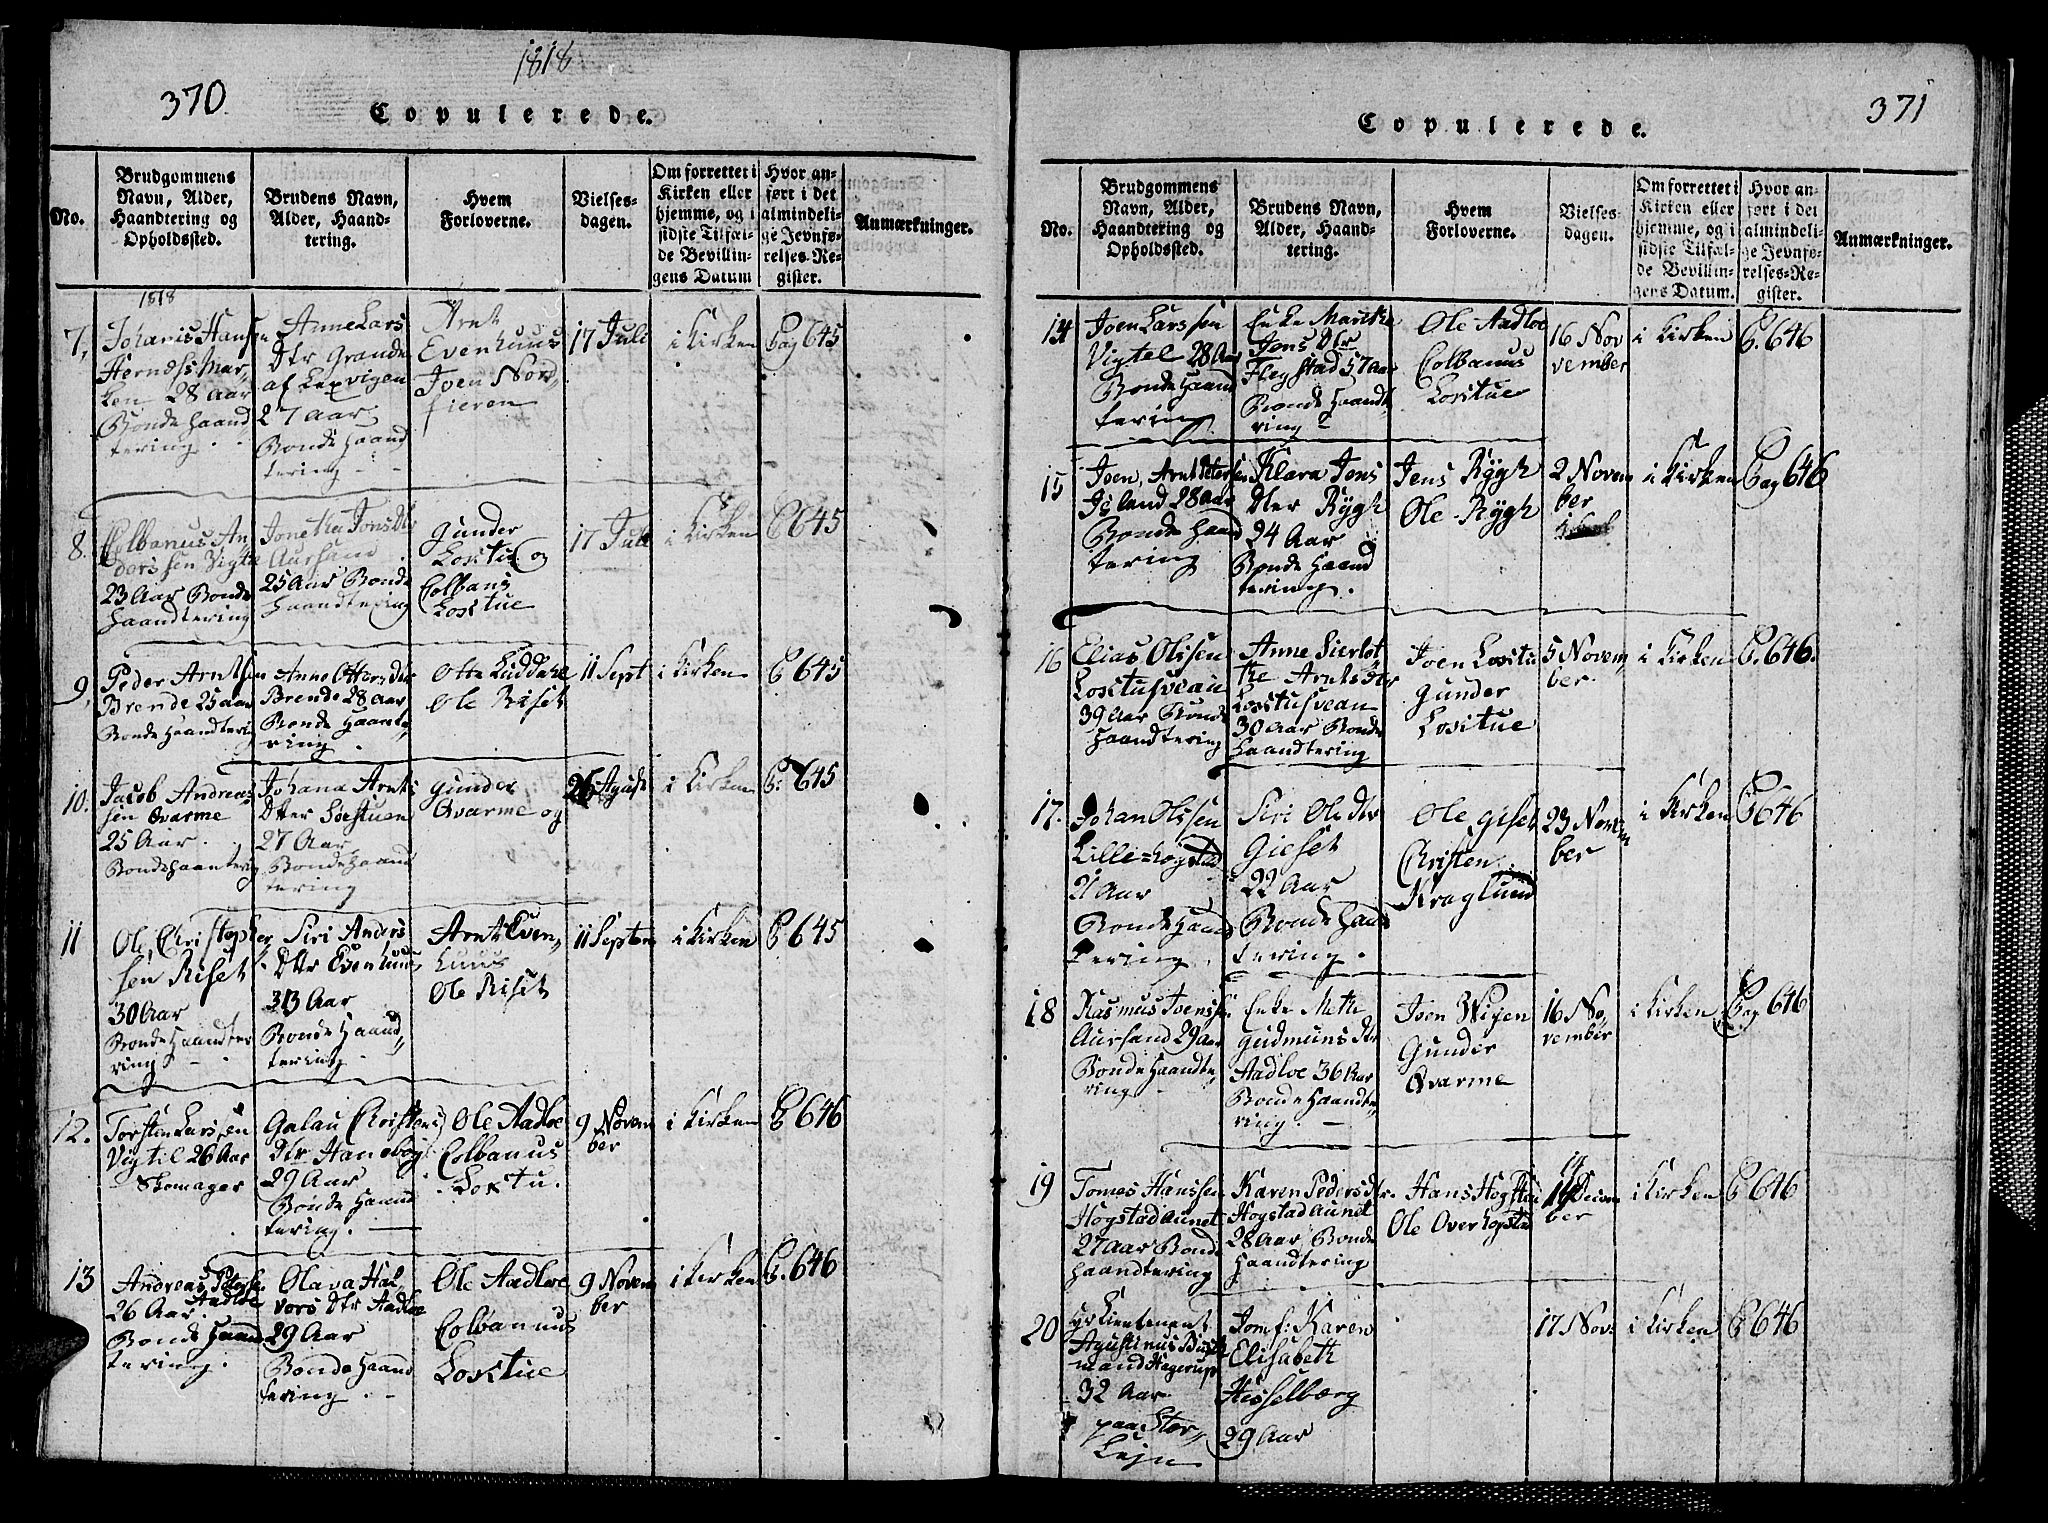 370
1818
Copulerede.
No.
Brudgommens Navn, Alder, Haandtering og Opholdssted.
Brudens Navn, Alder, Haandtering.
Hvem Forloverne.
Vielses-dagen.
Om forrettet i Kirken eller hjemme, og i sidste Tilfælde Bevillingens Datum
Hvor anført i det almindelige Jevnførelses-Register.
Anmærkninger.
1818
7, Johanis Hansen
Herndes Marken 28 aar
Bonde haandtering.
Anne Lars
Dtr Grande
af Lexvigen
27 aar
Bonde haandtering
Arnt
Evenhuus
Joen Nordfieren
17 Juli
i Kirken
Pag 645
8. Colbanus Anderssen Vigtel
23 Aar Bonde
haandtering
Jonetha Jonsdtr
Aursand
25 Aar Bonde
haandtering
Gunder
Loxtue og
Colbans
Loxtue
17 Juli
i Kirken
P 645
9, Peder Arntsen
Brende 25 aar
Bonde Haandtering
Anne Otters Dtr
Brende 28 aar
Bonde Haantering.
Otte
Ole Riset
11 Sept
i Kirken
P 645
10. Jacob Andreassen Qvarme
25 Aar.
Bondehaantering
Johana Arnts
Dtter Loestuen
27 Aar
Bonde haandtering
Gunder
Qvarme og
26 Agust
i Kirken
P. 645
11 Ole Christophersen Riset
30 Aar
Bonde Haandtering
Siri Anders
Dttr Evenhuus
33 Aar
Bonde Haandtering
Arnt Evenhuus
Ole Riset
11 Septem
i Kirken
P 645
12. Torsten Larssen
Vigtil 26 Aar
Skomager
Galau Christens
Dtr Haneboe
29 Aar
Bonde Haandtering.
Ole Aadloe
Colbanus
Loxtu.
9 November
i Kirken
P 646
13 Andreas Peterse
Aadloe
26 Aar.
Bonde Haandtering.
Olava Halvors Dtr Aadloe
29 Aar
Bonde Haandtering.
Ole Aadloe
Colbanus
Loxtue
9 November
i Kirken
P. 646
371
Copulerede.
No.
Brudgommens Navn, Alder, Haandtering og Opholdssted.
Brudens Navn, Alder, Haandtering.
Hvem Forloverne.
Vielses-dagen.
Om forrettet i Kirken eller hjemme, og i sidste Tilfælde Bevillingens Datum.
Hvor anført i det almindelige Jevnførelses-Register.
Anmærkninger.
14 Joen Larssen
Vigtel 28 Aar
Bonde haandtering.
Enke Maritha
Jons Dtr
Flegstad 57 aar
Bonde haandtring
Ole Aadloe
Colbanus
Loxtue
16 November
i Kirken
P. 646
15 Joen Arnt Petersen
Island 28 aar
Bonde haandtering
Klara Jens
Dtter Rygh
24 Aar
Bonde Haandtering.
Jens Rygh
Ole Rygh
2 November
i Kirken
Pag 646
16 Elias Olssen
Loxtusveau
39 Aar Bonde
haandtering
Anne Sierlotha Arntsdtr
Loxtusvean
30 Aar Bonde
haandtering
Joen Loxtu
Gunder
Loxtue
5 November.
i Kirken
P. 646.
17. Johan Olssen
Lille=hogstad
21 Aar
Bonde Haandtering.
Siri Ole dtr
Gieset
22 Aar
Bonde haandtering.
Ole Giset
Christen
Kraglund
23 November
i Kirken
P 646
18 Rasmus Ivenssen
Aursand 29 aar
Bonde Haandtering
Enke Meth
Gudmuns Dtr
Aadloe 36 Aar
Bonde Haandtering.
Joen Wigen
Gunder
Qvarme
16 November
i Kirken
Pag 646
19 Tomes Hanssen
Hogstadaunet
27 aar Bonde
haandtering
Karen Peders dtr.
Hogstad aunet
28 Aar Bonde
haandtering
Hans Hogstad
Ole Overhogstad
December
i Kirken
P 646
20 Hr Lieutenent
Agustinus
Hagerup
32 Aar
paa Størlejn
Jomf: Karen
Elisabeth
Hisselberg
29 Aar
17 Nov:
i Kirken
P 646